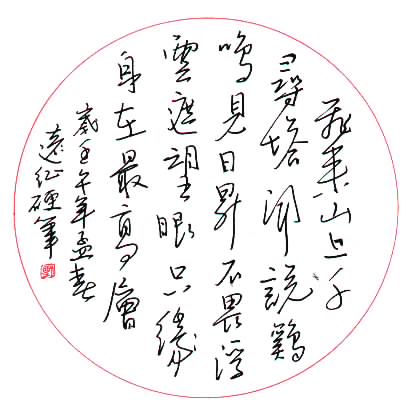 飛来山上千
尋塔聞説鷄
鳴見日昇不畏浮
雲遮望眼只緣
身在最高層
歲壬午年孟春
遠征硬筆